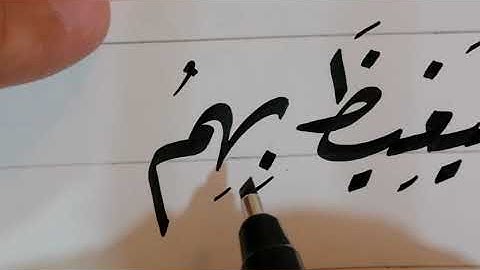 يَغِيظَ بِهِمُ